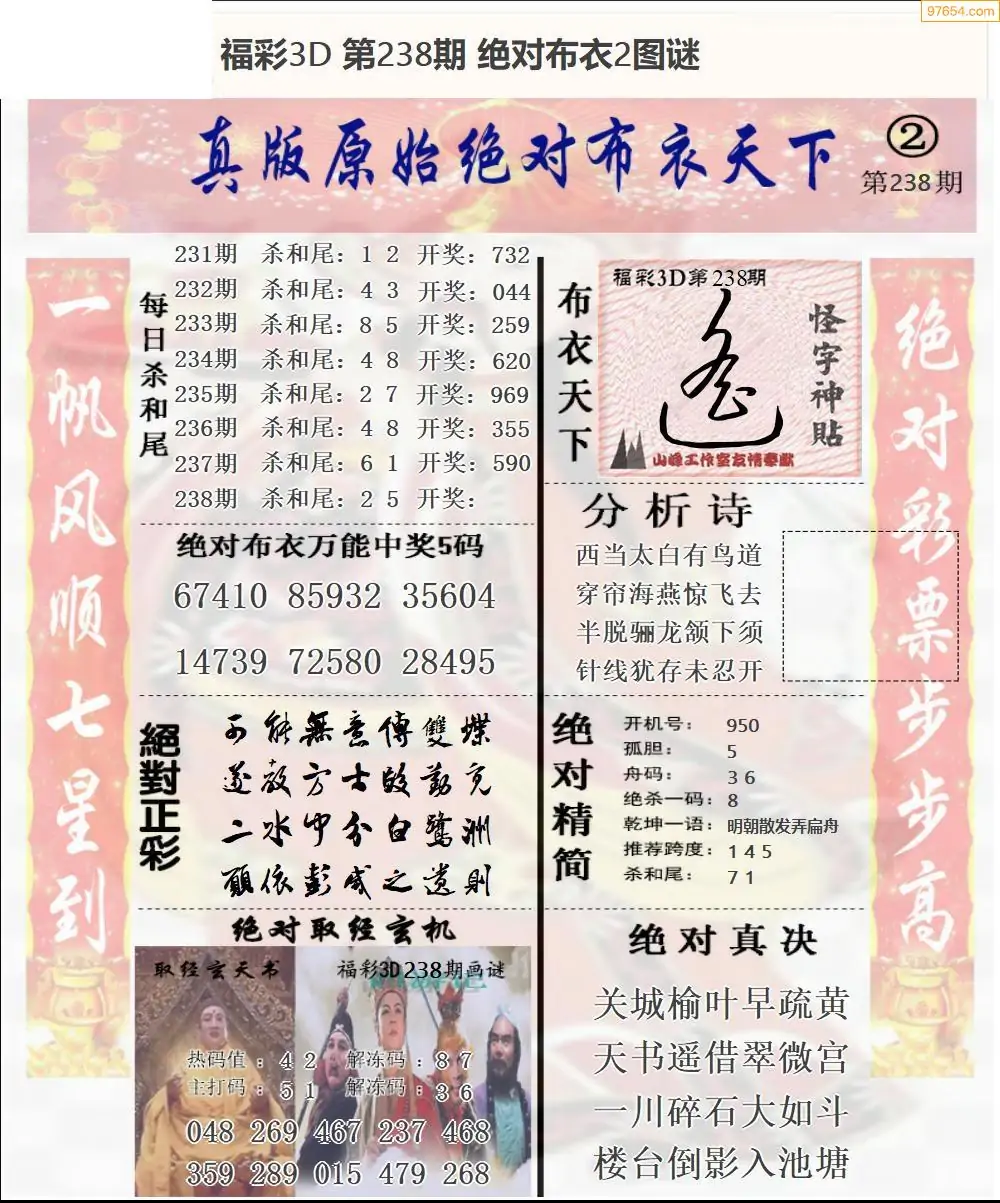 97654.com
福彩3D 第238期 绝对布衣2图谜
真版原始绝对布衣天下
②
第238期
一帆风顺七星到
每日杀和尾
231期 杀和尾：1 2 开奖：732
232期 杀和尾：4 3 开奖：044
233期 杀和尾：8 5 开奖：259
234期 杀和尾：4 8 开奖：620
235期 杀和尾：2 7 开奖：969
236期 杀和尾：4 8 开奖：355
237期 杀和尾：6 1 开奖：590
238期 杀和尾：2 5 开奖：
绝对布衣万能中奖5码
67410 85932 35604
14739 72580 28495
絕對正彩
可能無意傳雙蝶
遂教方士殷勤覓
二水中分白鷺洲
願依彭咸之遺則
绝对取经玄机
取经玄天书
福彩3D238期画谜
热码值：4 2 解冻码：8 7
主打码：5 1 解冻码：3 6
048 269 467 237 468
359 289 015 479 268
布衣天下
福彩3D第238期
怪字神贴
山峰工作室友情奉献
分析诗
西当太白有鸟道
穿帘海燕惊飞去
半脱骊龙颔下须
针线犹存未忍开
绝对精简
开机号：950
孤胆：5
舟码：3 6
绝杀一码：8
乾坤一语：明朝散发弄扁舟
推荐跨度：1 4 5
杀和尾：7 1
绝对真决
关城榆叶早疏黄
天书遥借翠微宫
一川碎石大如斗
楼台倒影入池塘
绝对彩票步步高